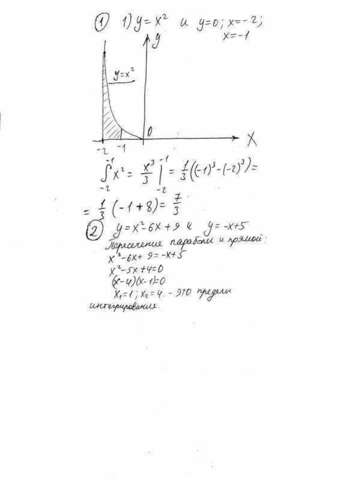 ① 1) y = x² и y=0; x=-2;
x=-1
y
y=x²
-2 -1 0 x
∫₋₂⁻¹ x² = x³/3 |₋₂⁻¹ = 1/3((-1)³-(-2)³) =
= 1/3(-1+8) = 7/3
② y = x²-6x+9 и y=-x+5
Пересечение параболы и прямой:
x²-6x+9=-x+5
x²-5x+4=0
(x-4)(x-1)=0
x₁=1; x₂=4 - это пределы
интегрирования.